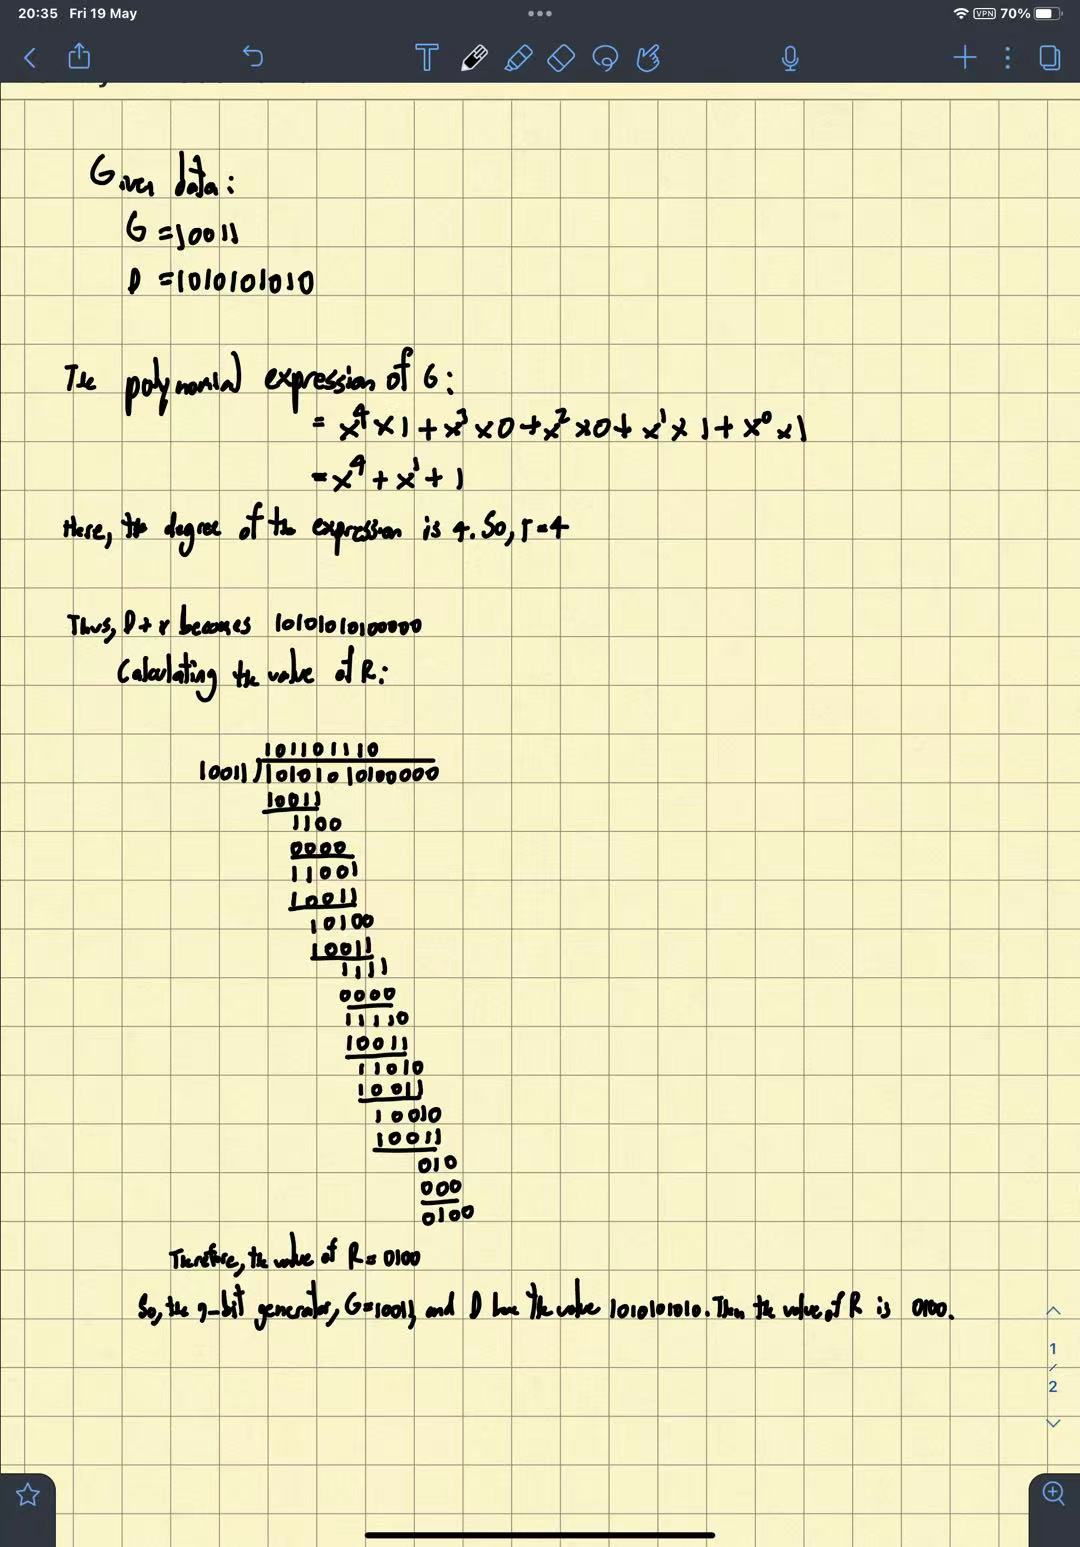 20:35 Fri 19 May
VPN 70%
Given data:
G = 10011
D = 1010101010
The polynomial expression of G:
= x⁴ × 1 + x³ × 0 + x² × 0 + x¹ × 1 + x⁰ × 1
= x⁴ + x¹ + 1
Here, the degree of the expression is 4. So, r = 4
Thus, D + r becomes 10101010100000
Calculating the value of R:
101101110
10011 ) 10101010100000
10011
1100
0000
11001
10011
10100
10011
1111
0000
11110
10011
11010
10011
10010
10011
010
000
0100
Therefore, the value of R = 0100
So, the generator, G = 10011, and D have the value 1010101010. Then the value of R is 0100.
1
/
2